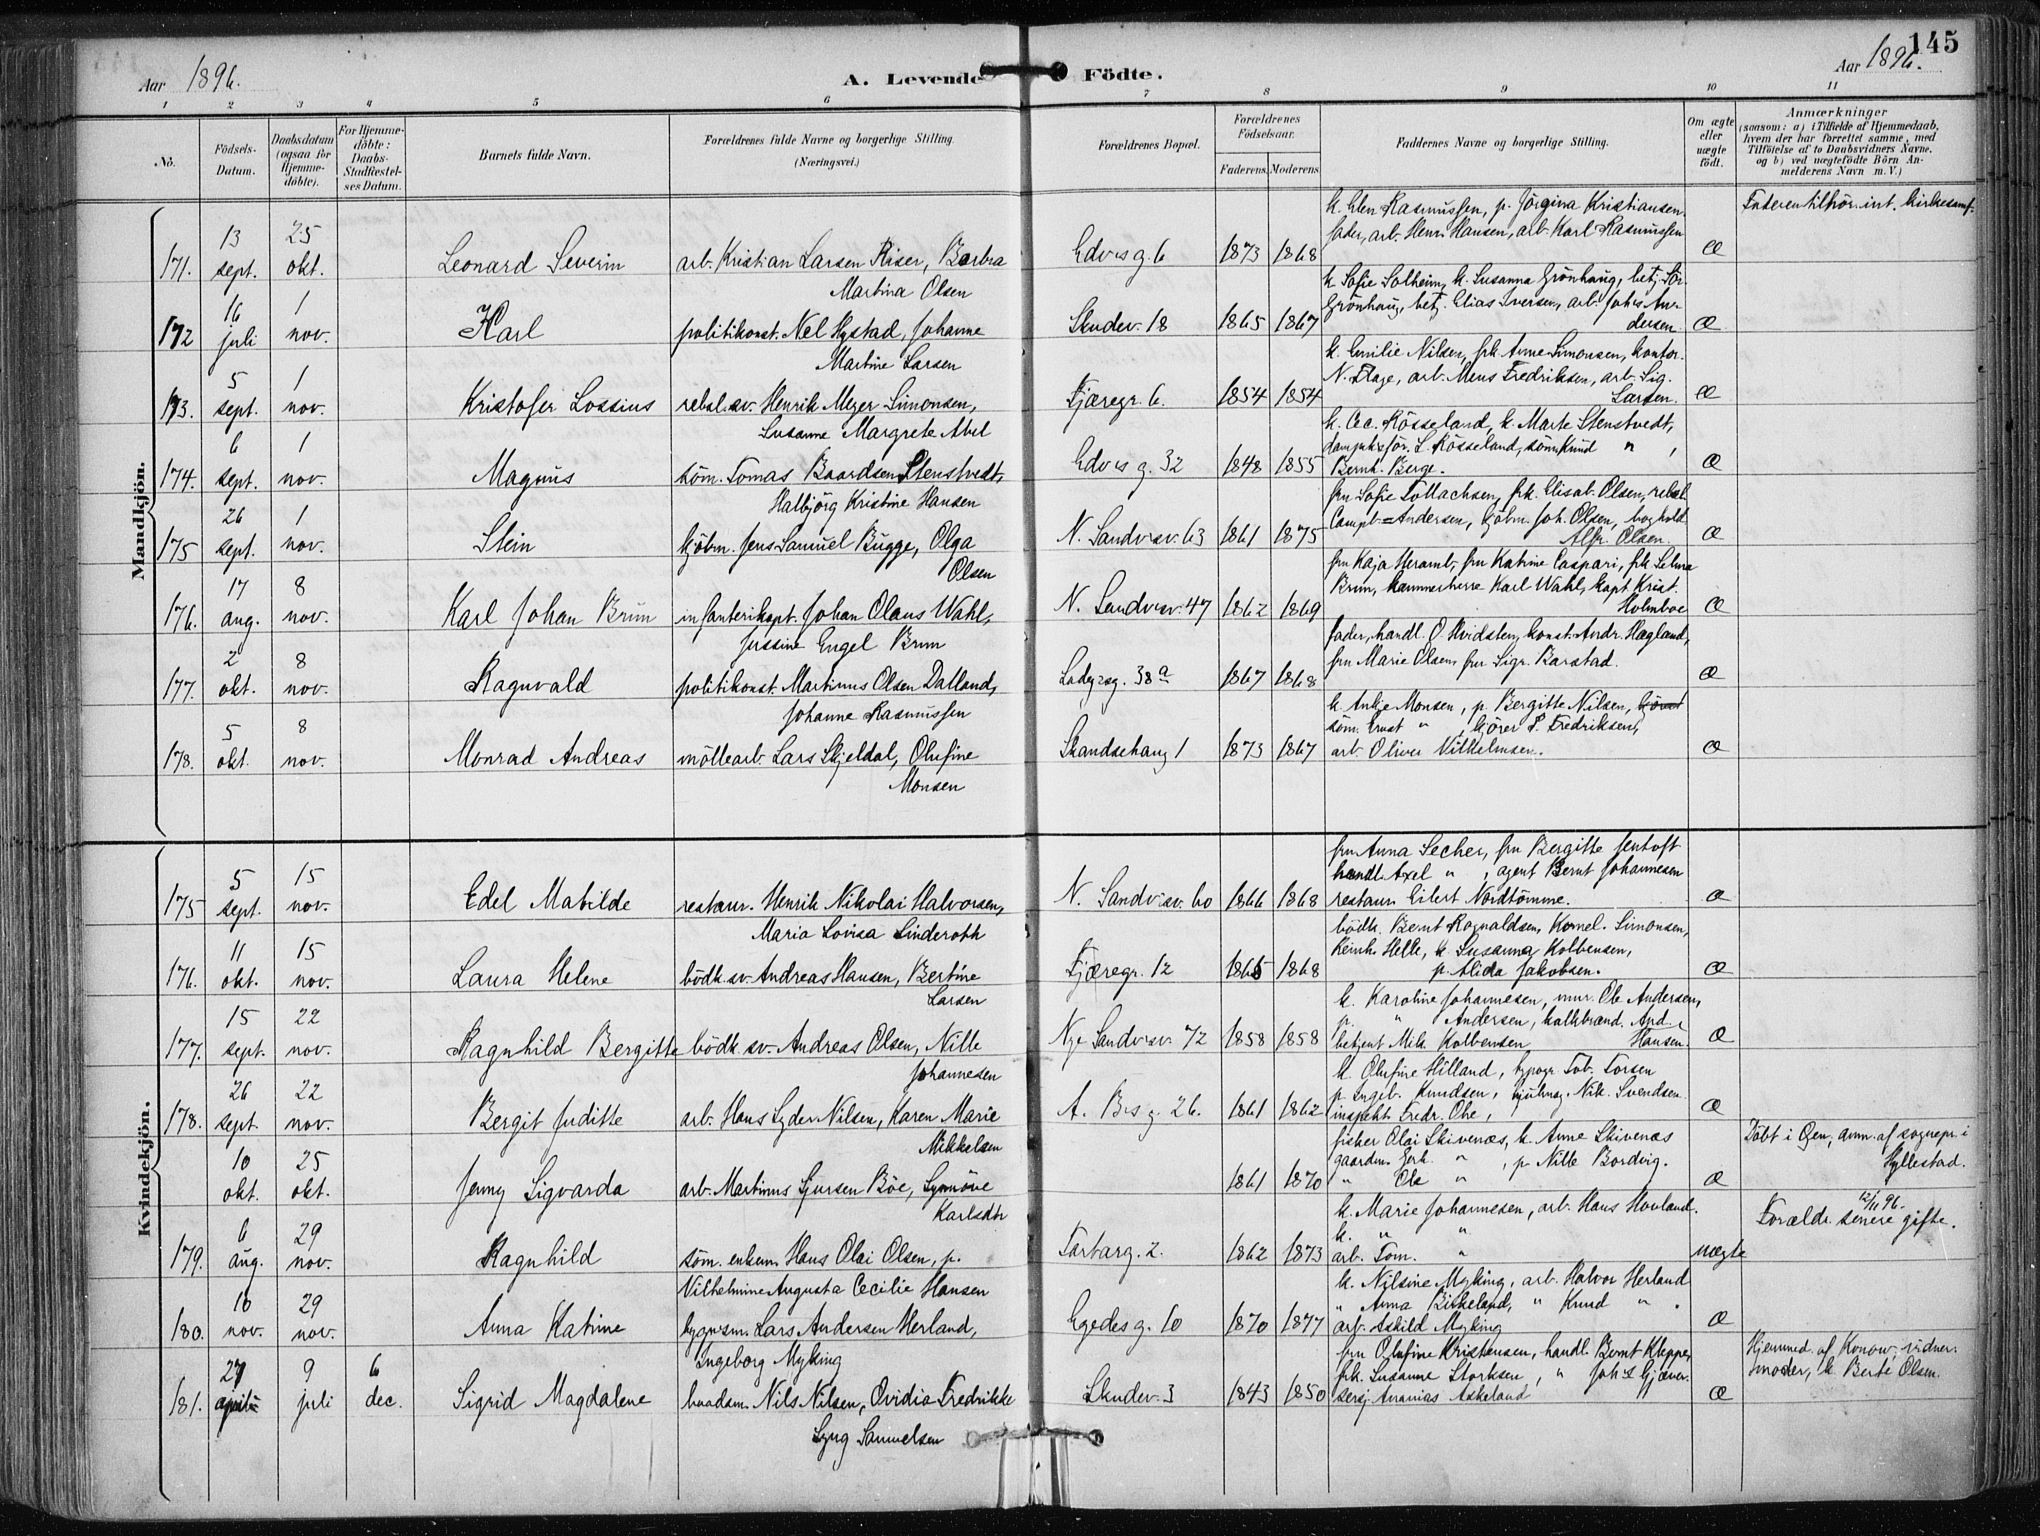 145
Aar 1896.
A. Levende Födte.
Aar 1896.
1 2 3 4 5 6 7 8 9 10 11
No.
Födsels-Datum.
Daabsdatum (ogsaa for Hjemme-döbte).
For Hjemme-döbte: Daabs-Stadfæstel-ses Datum.
Barnets fulde Navn.
Forældrenes fulde Navne og borgerlige Stilling. (Næringsvei.)
Forældrenes Bopæl.
Forældrenes Födselsaar.
Faderens. Moderens
Faddernes Navne og borgerlige Stilling.
Om ægte eller uægte födt.
Anmærkninger
(saasom: a) i Tilfælde af Hjemmedaab, hvem der har forrettet samme, med Tilföielse af to Daabsvidners Navne, og b) ved uægtefödte Börn An-melderens Navn m. V.)
Mandkjön.
171. 13 sept. 25 okt. Leonard Severin
arb. Kristian Larsen Riser, Barbra
Martina Olsen
Edvs g. 6 1873 1868
k. Elen Rasmussen, p. Jörgina Kristiansen
fader, arb. Henr. Hansen, arb. Karl Rasmussen
Æ
Faderen tilhör. int. kirkesamf.
172 16 juli 1 nov. Karl
politikonst. Nel Hystad, Johanne
Martine Larsen
Skudev. 18 1865 1867
k. Sofie Solheim, k. Susanna Grönhaug, betj. Sör.
Grönhaug, betj. Elias Iversen, arb. Johs An-
dersen. Æ
173. 5 sept. 1 nov. Kristofer Lossius
rebsl.sv. Henrik Meyer Simonsen,
Susanne Margrete Abel
Fjæregr. 6. 1854 1854
k. Emilie Nilsen, frk. Anne Simonsen, kontor.
N. Flage, arb. Mens Fredriksen, arb. Sig.
Larsen. Æ
174. 6 sept. 1 nov. Magnus
söm. Tomas Baardsen Stenstvedt,
Halbjörg Kristine Hansen
Edvs g. 32 1848 1855
k. Cec. Rösseland, k. Marte Stenstvedt,
dampsksför. S. Rösseland, söm. Knud " ,
Bernh. Berge. Æ
175 26 sept. 1 nov. Stein
kjöbm. Jens Samuel Bugge, Olga
Olsen
N. Sandvsv. 63 1861 1875
fru Sofie Tollachsen, frk. Elisab. Olsen, rebsl.
Campb. Andersen, kjöbm. Joh. Olsen, boghold.
Alfr. Olsen. Æ
176. 17 aug. 8 nov. Karl Johan Brun
infanterikapt. Johan Olaus Wahl,
Jessine Engel Brun
N. Sandvsv. 47 1862 1869
fru Kaja Heramb, fru Katrine Caspari, frk Selma
Brun, kammerherre Karl Wahl, kapt. Krist.
Holmboe Æ
177. 2 okt. 8 nov. Ragnvald
politikonst. Martinus Olsen Dalland,
Johanne Rasmussen
Ladegsg. 38 a 1867 1868
fader, handl. O. Kvidsten, konst. Andr. Hagland,
fru Marie Olsen, fru Sigr. Barstad.
Æ
178. 5 okt. 8 nov. Monrad Andreas
möllearb. Lars Skjeldal, Olufine
Monsen
Skandsehaug 1 1873 1867
k. Antje Monsen, p. Bergitte Nilsen,
söm. Ernst " , kjörer P. Fredriksen,
arb. Oliver Vilhelmsen. Æ
Kvindekjön.
175 5 sept. 15 nov. Edel Matilde
restaur. Henrik Nikolai Halvorsen,
Maria Lovisa Linderoth
N. Sandvsv. 60 1866 1868
fru Anna Secher, fru Bergitte Jentoft
handl. Axel " , agent Bernt Johannesen
restaur. Eilert Nordtömme. Æ
176. 11 okt. 15 nov. Laura Helene
bödk.sv. Andreas Hansen, Bertine
Larsen
Fjæregr. 12 1865 1868
bödk. Bernt Ragnaldsen, Kornel. Simonsen,
Reinh. Helle, k. Susanna Kolbensen,
p. Alida Jakobsen. Æ
177. 15 sept. 22 nov. Ragnhild Bergitte
bödk.sv. Andreas Olsen, Nille
Johannesen
Nye Sandvsv. 72 1858 1858
k. Karoline Johannesen, mur. Ole Andersen,
p. " Andersen, kalkbrænd. And.
betjent Mik. Kolbensen Hansen. Æ
178. 26 sept. 22 nov. Bergit Juditte
arb. Hans Lyder Nilsen, Karen Marie
Mikkelsen
A. Bs g. 26. 1861 1862
k. Olufine Hilland, typogr. Tob. Torsen
p. Ingeb. Knudsen, hjulmg. Nik. Svendsen
inspekt. Fredr. Obe, Æ
10 okt. 25 okt. Jenny Sigvarda
arb. Martinus Sjursen Böe, Synnöve
Karlsdtr
1861 1870
fisker Olai Skivenæs, k. Anne Skivenæs
gaardm. Gerh. " , p. Nille Bordvig.
" Ole " Æ
Döbt i Öen, anm. af sognepr. i
Hyllestad.
179. 6 aug. 29 nov. Ragnhild
söm. enkem. Hans Olai Olsen, p.
Vilhelmine Augusta Cecilie Hansen
Tartarg. 2. 1862 1873
k. Marie Johannesen, arb. Hans Hovland.
k. " "
arb. Tom. " uægte
12/11 96.
Forældr. senere gifte.
180. 10 nov. 29 nov. Anna Katrine
bygnsm. Lars Andersen Herland,
Ingeborg Myking
Egedes g. 10 1870 1877
k. Nilsine Myking, arb. Halvor Herland
" Anna Birkeland, " Knud " .
arb. Askild Myking Æ
181. 27 april 9 juli 6 dec. Sigrid Magdalene
baadsm. Nils Nilsen, Ovidia Fredrikke
Lyng Samuelsen
Skudev. 3 1843 1850
fru Olufine Kristensen, handl. Bernt Kleppe,
frk. Susanne Storksen, " Johs Gjæver
sersj. Ananias Askeland Æ
Hjemmed. af Konow, vidner:
moder, k. Berte Olsen.